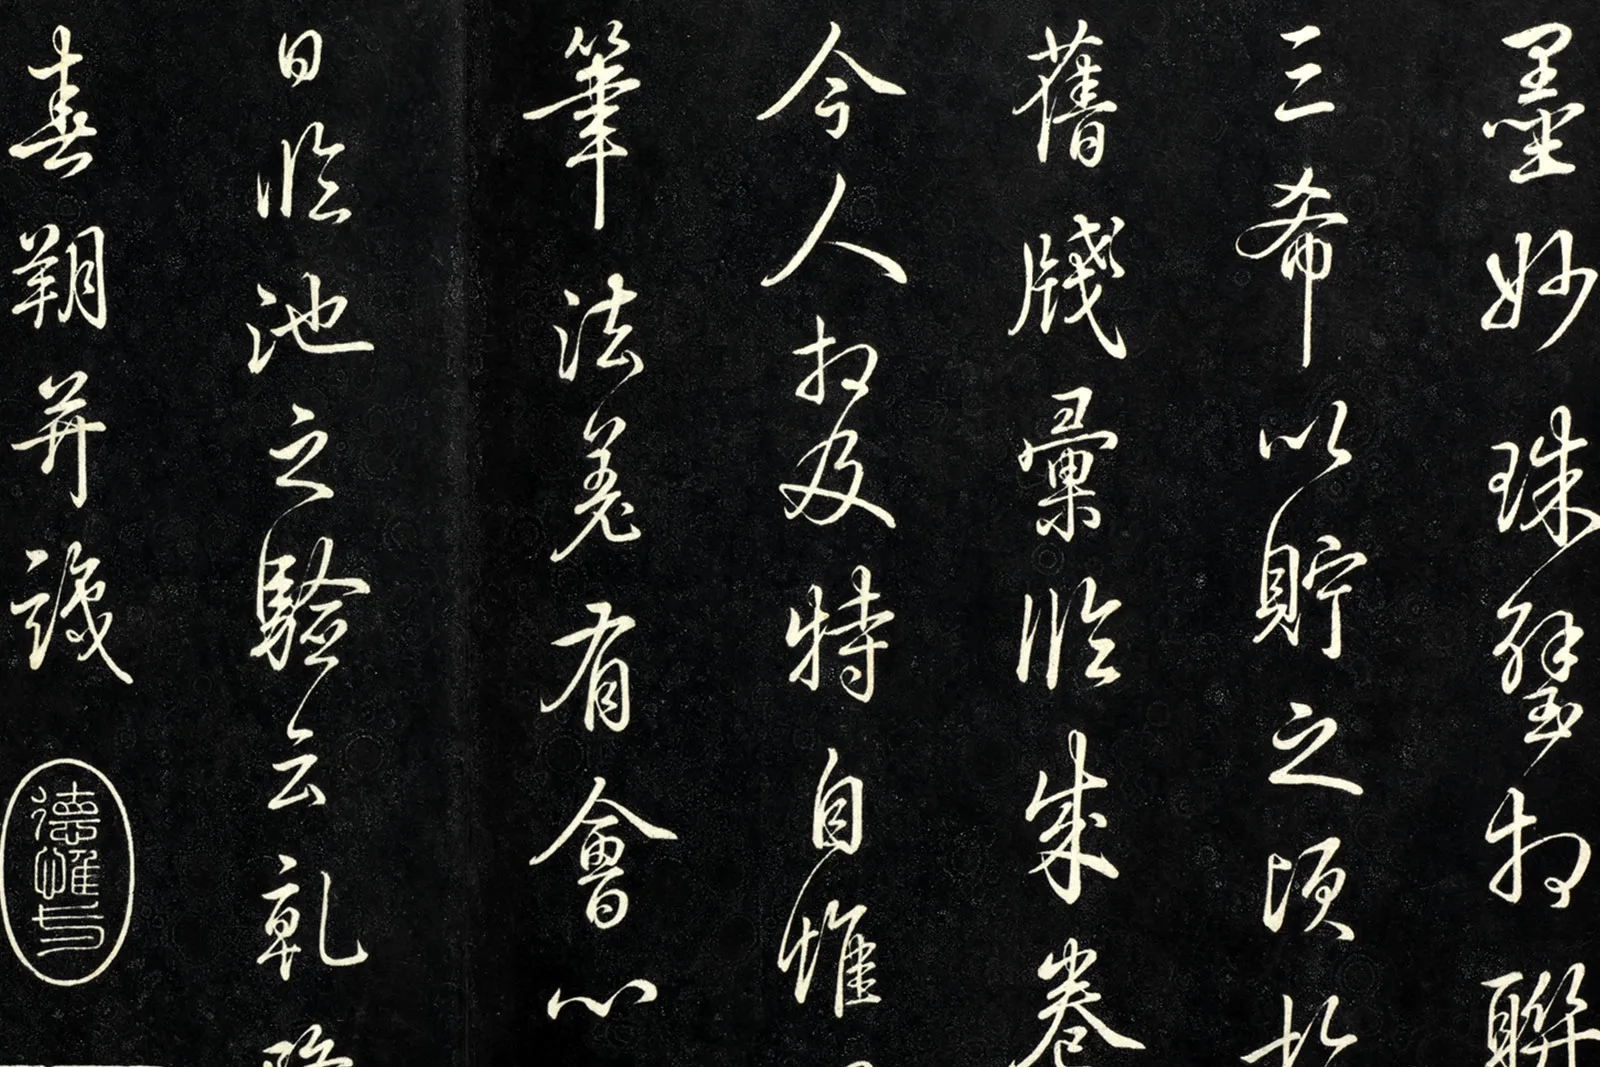 墨妙珠璧相聯
三希以貯之頃於
舊牋彙臨成卷
今人相及特自惟
筆法差有會心
日臨池之驗云乾隆
春朔并識
德惟一